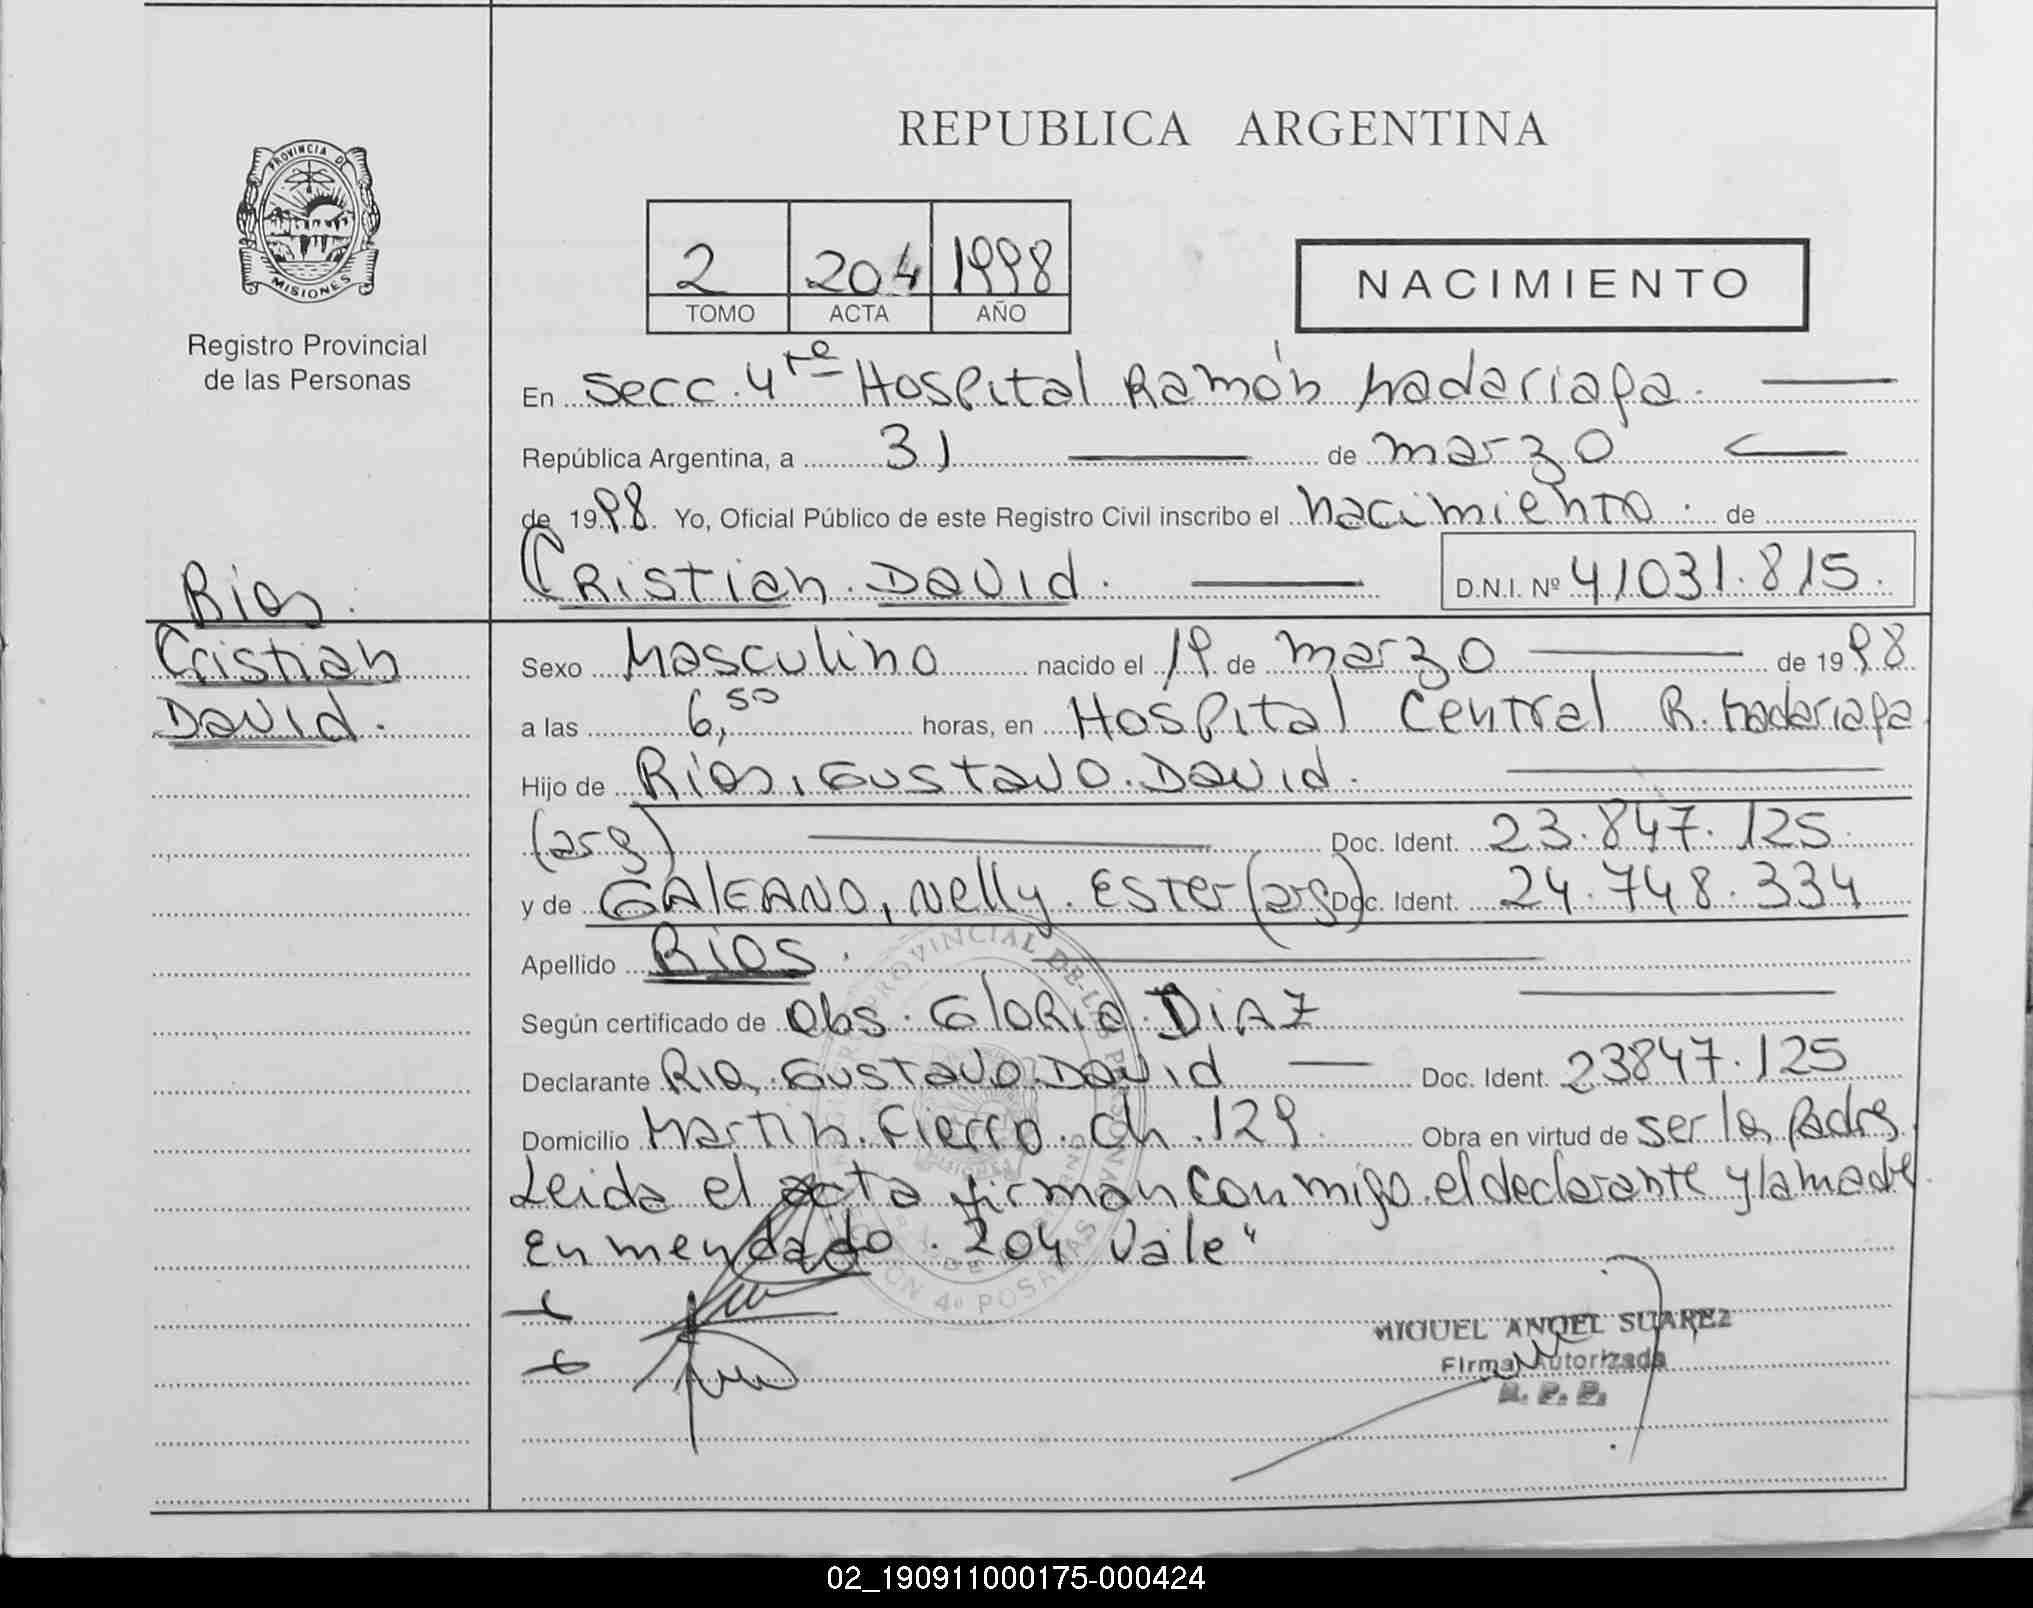 REPUBLICA ARGENTINA
PROVINCIA DE
MISIONES
Registro Provincial
de las Personas
2 204 1998
TOMO ACTA AÑO
NACIMIENTO
En Secc. 4ta Hospital Ramón Madariaga.
República Argentina, a 31 de marzo
de 1998. Yo, Oficial Público de este Registro Civil inscribo el nacimiento. de
Cristian. David. D.N.I. Nº 41031.815.
Rios.
Cristian
David.
Sexo Masculino nacido el 19 de marzo de 1998
a las 6,50 horas, en Hospital Central R. Madariaga
Hijo de Rios, Gustavo. David.
(arg) Doc. Ident. 23.847.125
y de GALEANO, Nelly. Ester (arg) Doc. Ident. 24.748.334
Apellido Rios.
Según certificado de Obs. Gloria DiAZ
Declarante Rio, Gustavo. David Doc. Ident. 23847.125
Domicilio Martin. Fierro. Ch. 129 Obra en virtud de ser los padres
Leida el acta firman conmigo. el declarante y la madre
Enmendado. 204 Vale"
MIGUEL ANGEL SUAREZ
Firma Autorizada
R. P. P.
02_190911000175-000424